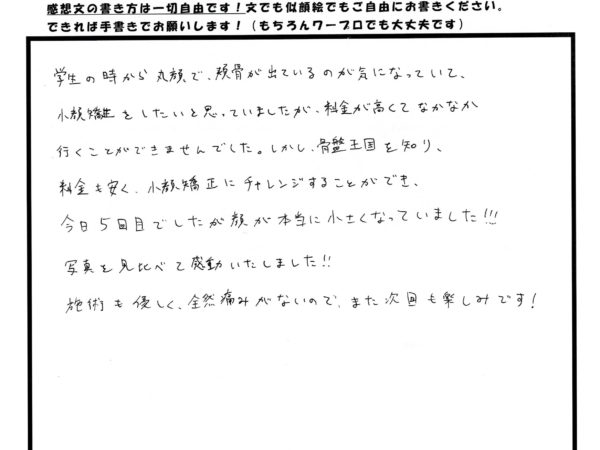 感想文の書き方は一切自由です！文でも似顔絵でもご自由にお書きください。
できれば手書きでお願いします！（もちろんワープロでも大丈夫です）
学生の時から丸顔で、頬骨が出ているのが気になっていて、
小顔矯正をしたいと思っていましたが、料金が高くてなかなか
行くことができませんでした。しかし、骨盤王国を知り、
料金も安く、小顔矯正にチャレンジすることができ、
今日5回目でしたが顔が本当に小さくなっていました!!!
写真を見比べて感動いたしました!!
施術も優しく、全然痛みがないので、また次回も楽しみです！